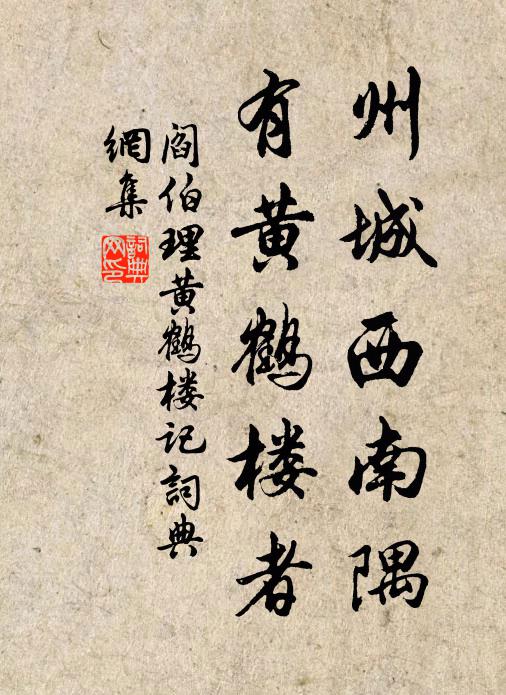 州城西南隅
有黄鹤楼者
阎伯理黄鹤楼记词典
網集
詞典
网印